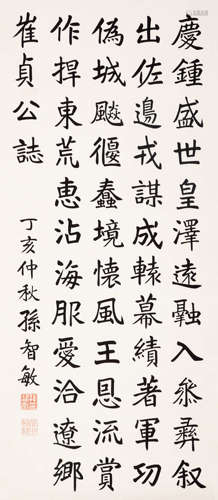 慶鍾盛世皇澤遠融入叅彝叙
出佐邊戎謀成轅幕績著軍功
偽城飇偃蠢境懷風王恩流賞
作捍東荒惠沾海服愛洽遼鄉
崔貞公誌
丁亥仲秋孫智敏